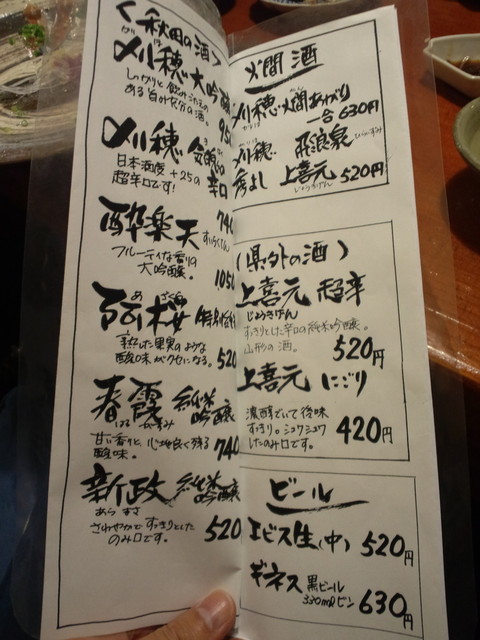 〈秋田の酒〉
刈穂 大吟醸
しっかりと飲みごたえの
ある旨み充分の酒。
950
刈穂 気魄の
辛口
日本酒度+25の
超辛口です!
740
酔楽天
すいらくてん
フルーティな香りの
大吟醸。
1050
あざくら
阿桜 特別純米
熟した果実のような
酸味がクセになる。
520
春霞 純米
吟醸
はるがすみ
甘い香りと、心地良く残る
酸味。
740
新政 純米
吟醸
あらまさ
さわやかで すっきりとした
のみ口です。
520
燗酒
刈穂 燗あがり
一合 630円
刈穂 飛良泉
秀よし 上喜元 520円
じょうきげん
(県外の酒)
上喜元 超辛
じょうきげん
すっきりとした辛口の純米吟醸。
山形の酒。
520円
上喜元 にごり
濃醇でいて後味
すっきり。シュワシュワ
したのみ口です。
420円
ビール
エビス生(中) 520円
ギネス 黒ビール
330mlビン 630円